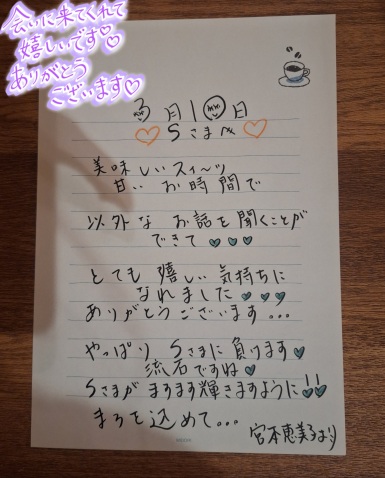 会いに来てくれて
嬉しいです♡
ありがとう
ございます♡
3月10日
♡ Sさまへ ♡
美味しいスイーツ
甘い お時間で
以外な お話を聞くことが
できて♡♡♡
とても 嬉しい 気持ちに
なれました♡♡♡
ありがとうございます...
やっぱり Sさまに 負けます♡
流石ですね♡
Sさまが ますます 輝きますように!!
まろを 込めて...
宮本恵美